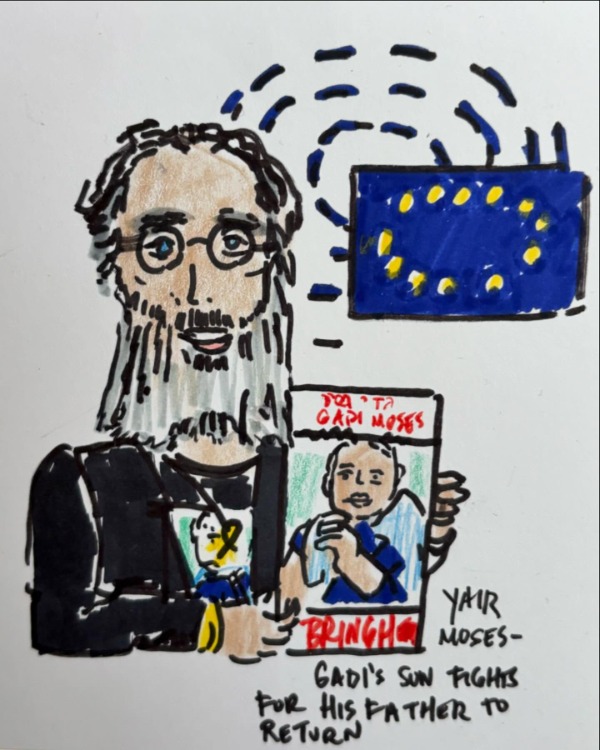 GADI MOSES
BRINGH
YAIR
MOSES-
GADI'S SUN FIGHTS
FOR HIS FATHER TO
RETURN